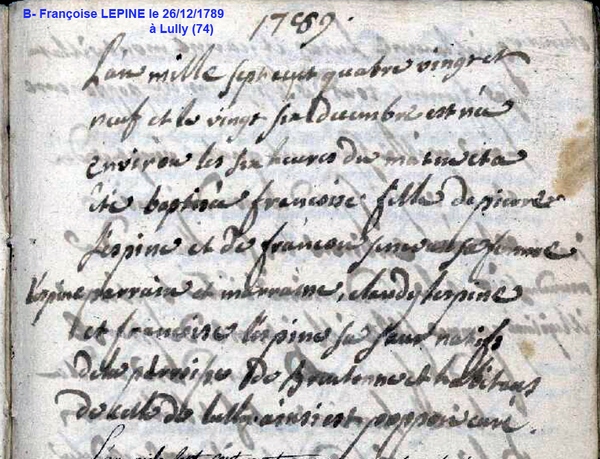 B- Françoise LEPINE le 26/12/1789
à Lully (74)
1789.
L'an mille sept cent quatre vingt et
neuf et le vingt six decembre est née
environ les six heures du matin et a
été baptisée françoise fille de pierre
Lespine et de françoise sa femme
Lespine parrain et marraine, claude lespine
et françoise lespine sa sœur natifs
de la parroisse de Brentonne et habitans
de celle de lully. ainsi est curé.